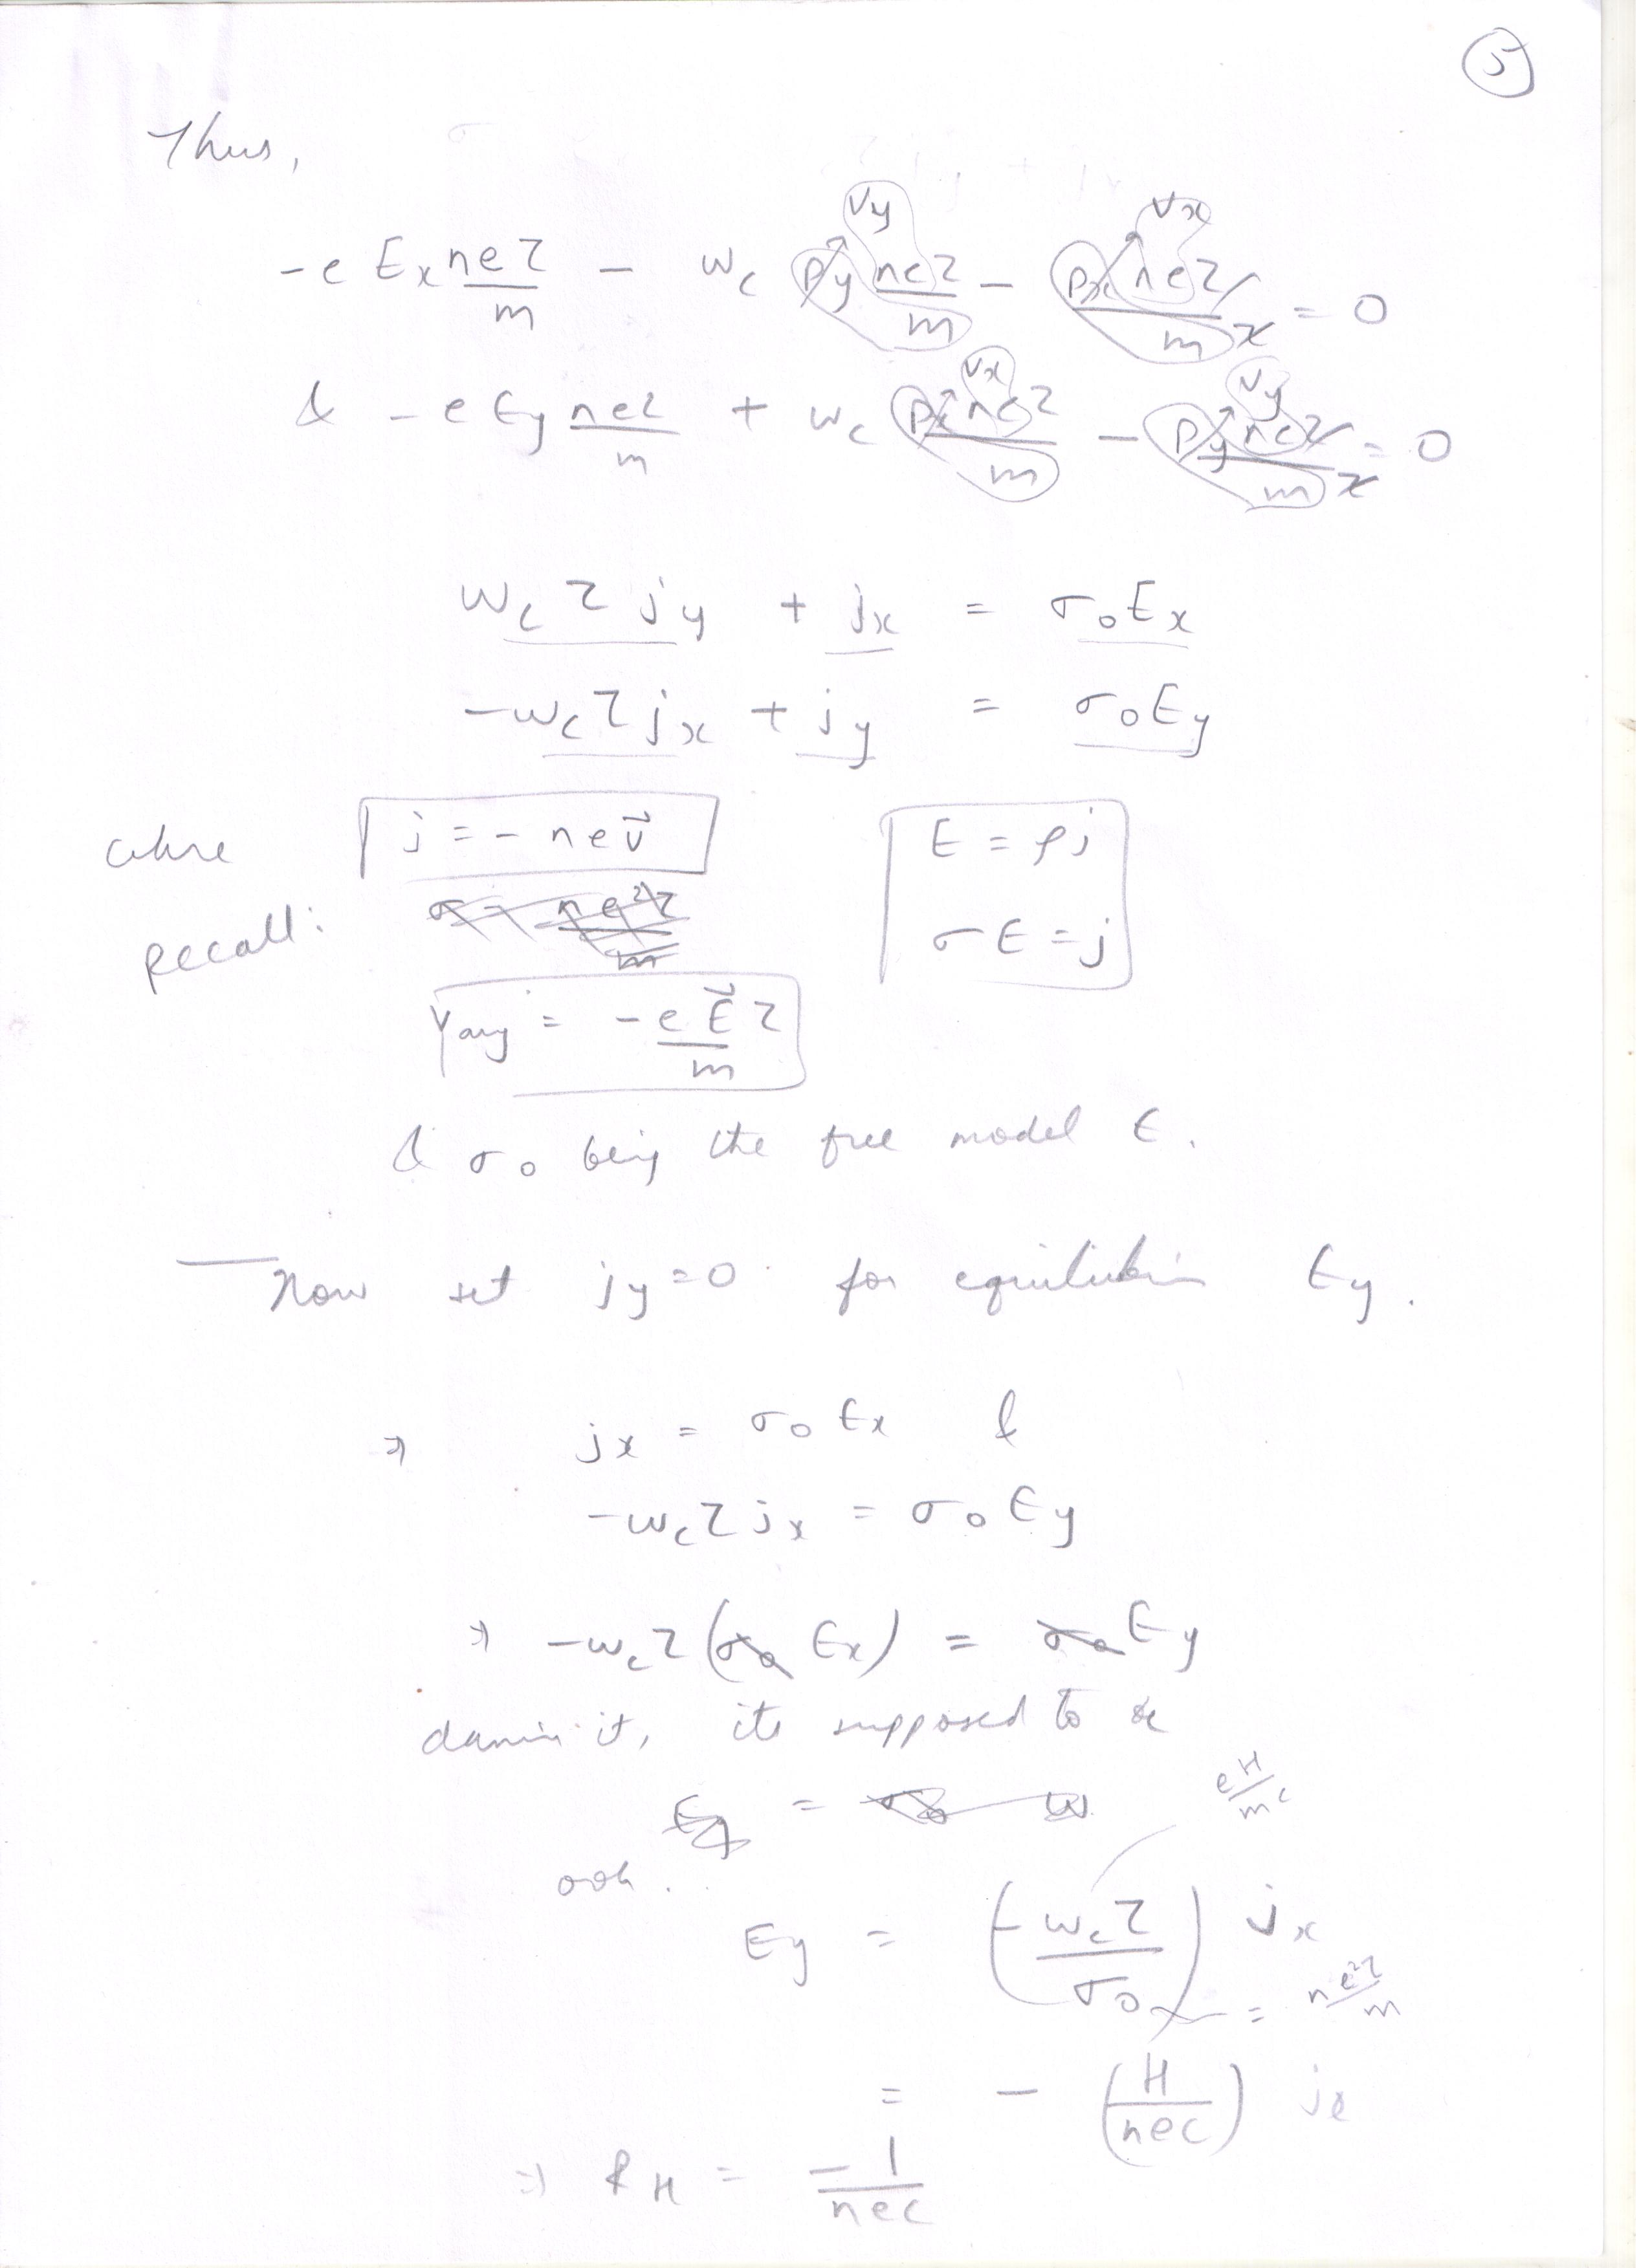 5
Thus,
-e Ex neτ/m - ωc py neτ/m - px neτ/mτ = 0
vy vx
& -e Ey neτ/m + ωc px neτ/m - py neτ/mτ = 0
vx vy
ωc τ jy + jx = σ0Ex
-ωc τ jx + jy = σ0Ey
where j = - ne v⃗ E = ρj
recall: σ = ne²τ/m σE = j
vavg = -eE⃗τ/m
& σ0 being the free model
Now set jy=0 for equilibrium Ey.
⇒ jx = σ0Ex &
-ωcτjx = σ0Ey
⇒ -ωcτ(σ0 Ex) = σ0Ey
damn it, its supposed to be
Ey = σ0 ω eH/mc
ooh..
Ey = (-ωcτ/σ0) jx
= ne²τ/m
= - (H/nec) jx
⇒ RH = -1/nec